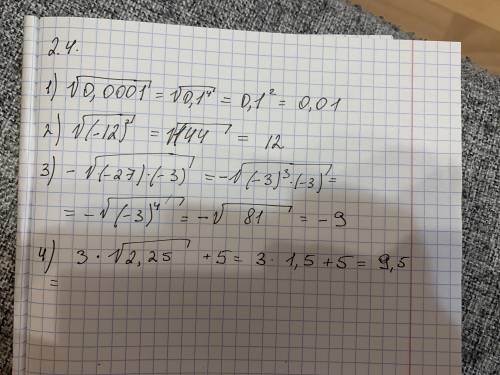 2.4.
1) √0,0001 = √0,1⁴ = 0,1² = 0,01
2) √(-12)² = √144 = 12
3) - √(-27)·(-3) = -√(-3)³·(-3) =
= -√(-3)⁴ = -√81 = -9
4) 3 · √2,25 + 5 = 3 · 1,5 + 5 = 9,5
=